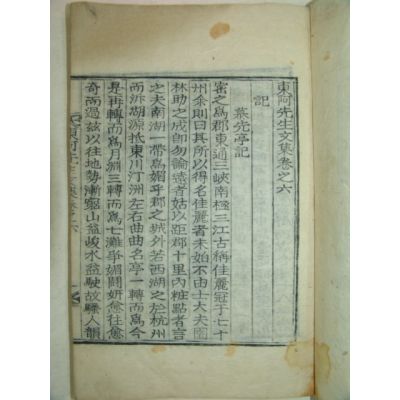 東阿先生文集卷之六
記
慕先亭記
密之爲郡東三峽南極三江古稱佳麗冠于七十
州余則曰其所以得名佳麗者未始不由士大夫園
林助之成卽勿論遠者姑以近郡十里內粧點者言
之夫南湖一帶媚乎郡之城外若西湖之於杭州
而泝湖源抵東川汀洲左右曲曲名亭一轉而爲今
是再轉而爲月淵三轉而爲七灘爭媚鬪姸愈往愈
奇而過玆以往地勢漸窄山益峻水益駛故騷人韻